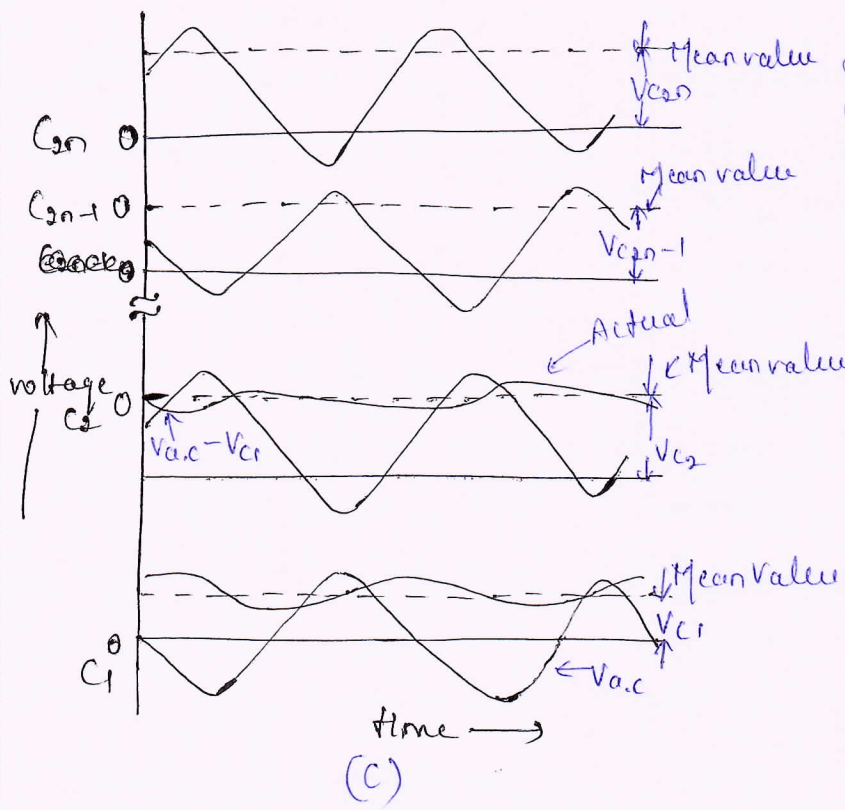 Mean value
Vc2n
C2n 0
Mean value
C2n-1 0
Vc2n-1
0
Actual
Mean value
voltage
C2 0
Va.c-Vc1
Vc2
Mean Value
Vc1
0
C1
Va.c
time
(C)